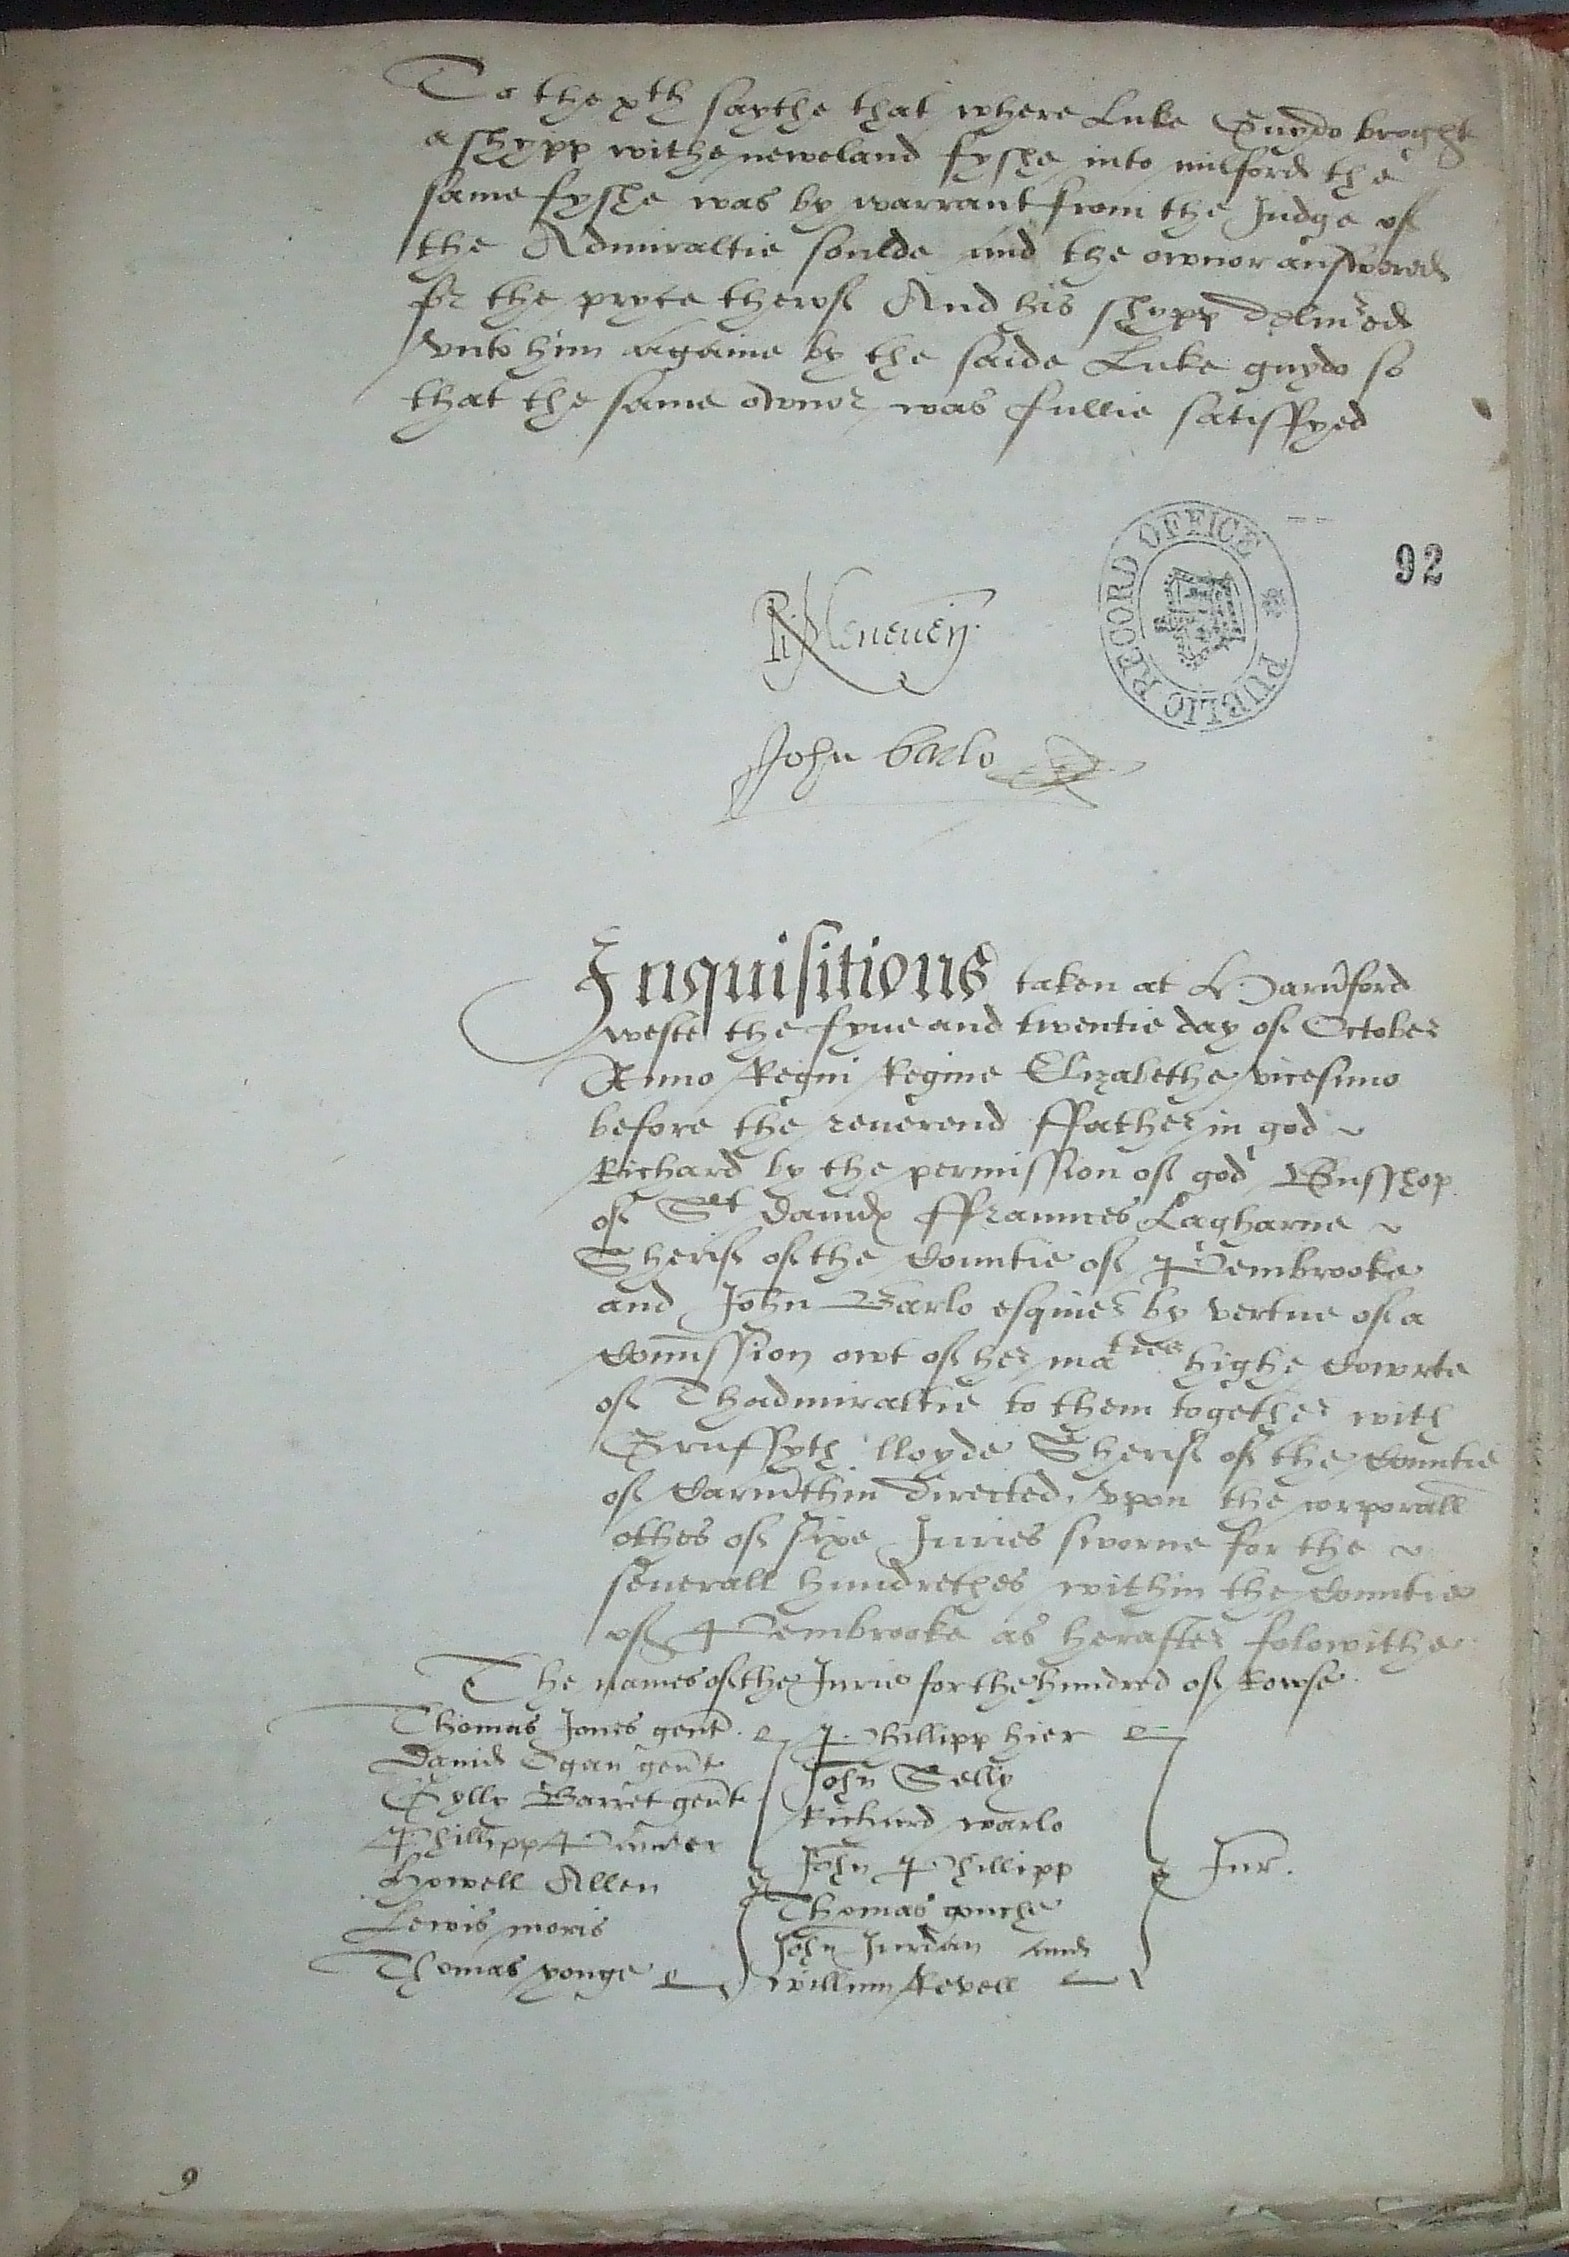 To the xth saythe that where Luke Guydo broght
a shypp withe neweland fyshe into milford the
same fyshe was by warrant from the Judge of
the Admiraltie soulde and the ownor answered
for the pryce therof And his shypp delivred
vnto him againe by the saide Luke guydo so
that the same ownor was fullie satisffyed
PUBLIC RECORD OFFICE
92
Ri Meneven
John barlo
Inquisitions taken at Harvford
weste the fyue and twentie day of October
Anno Regni Regine Elizabethe vicesimo
before the reuerend ffather in god
Richard by the permission of god Busshop
of Sct Dauids ffraunces Lagharne
Sherif of the Countie of Pembrooke
and John Barlo esquier by vertue of a
Comission owt of her maties highe Cowrte
of Thadmiraltie to them together with
Gruffyth lloyde Sherif of the Countie
of Carmthin directed vpon the corporall
othes of sixe Juries sworne for the
seuerall hundrethes within the Countie
of Pembrooke as herafter folowithe
The names of the Jurie for the hundred of Rowse
Thomas Jones gent
Dauid Ogan gent
Gylly Barret gent
Phillipp
Howell Allen
Lewis moris
Thomas yonge
Phillipp hier
John Selly
Richard warlo
John Phillipp
Thomas gouche
John Jurdan and
William Revell
Jur.
9